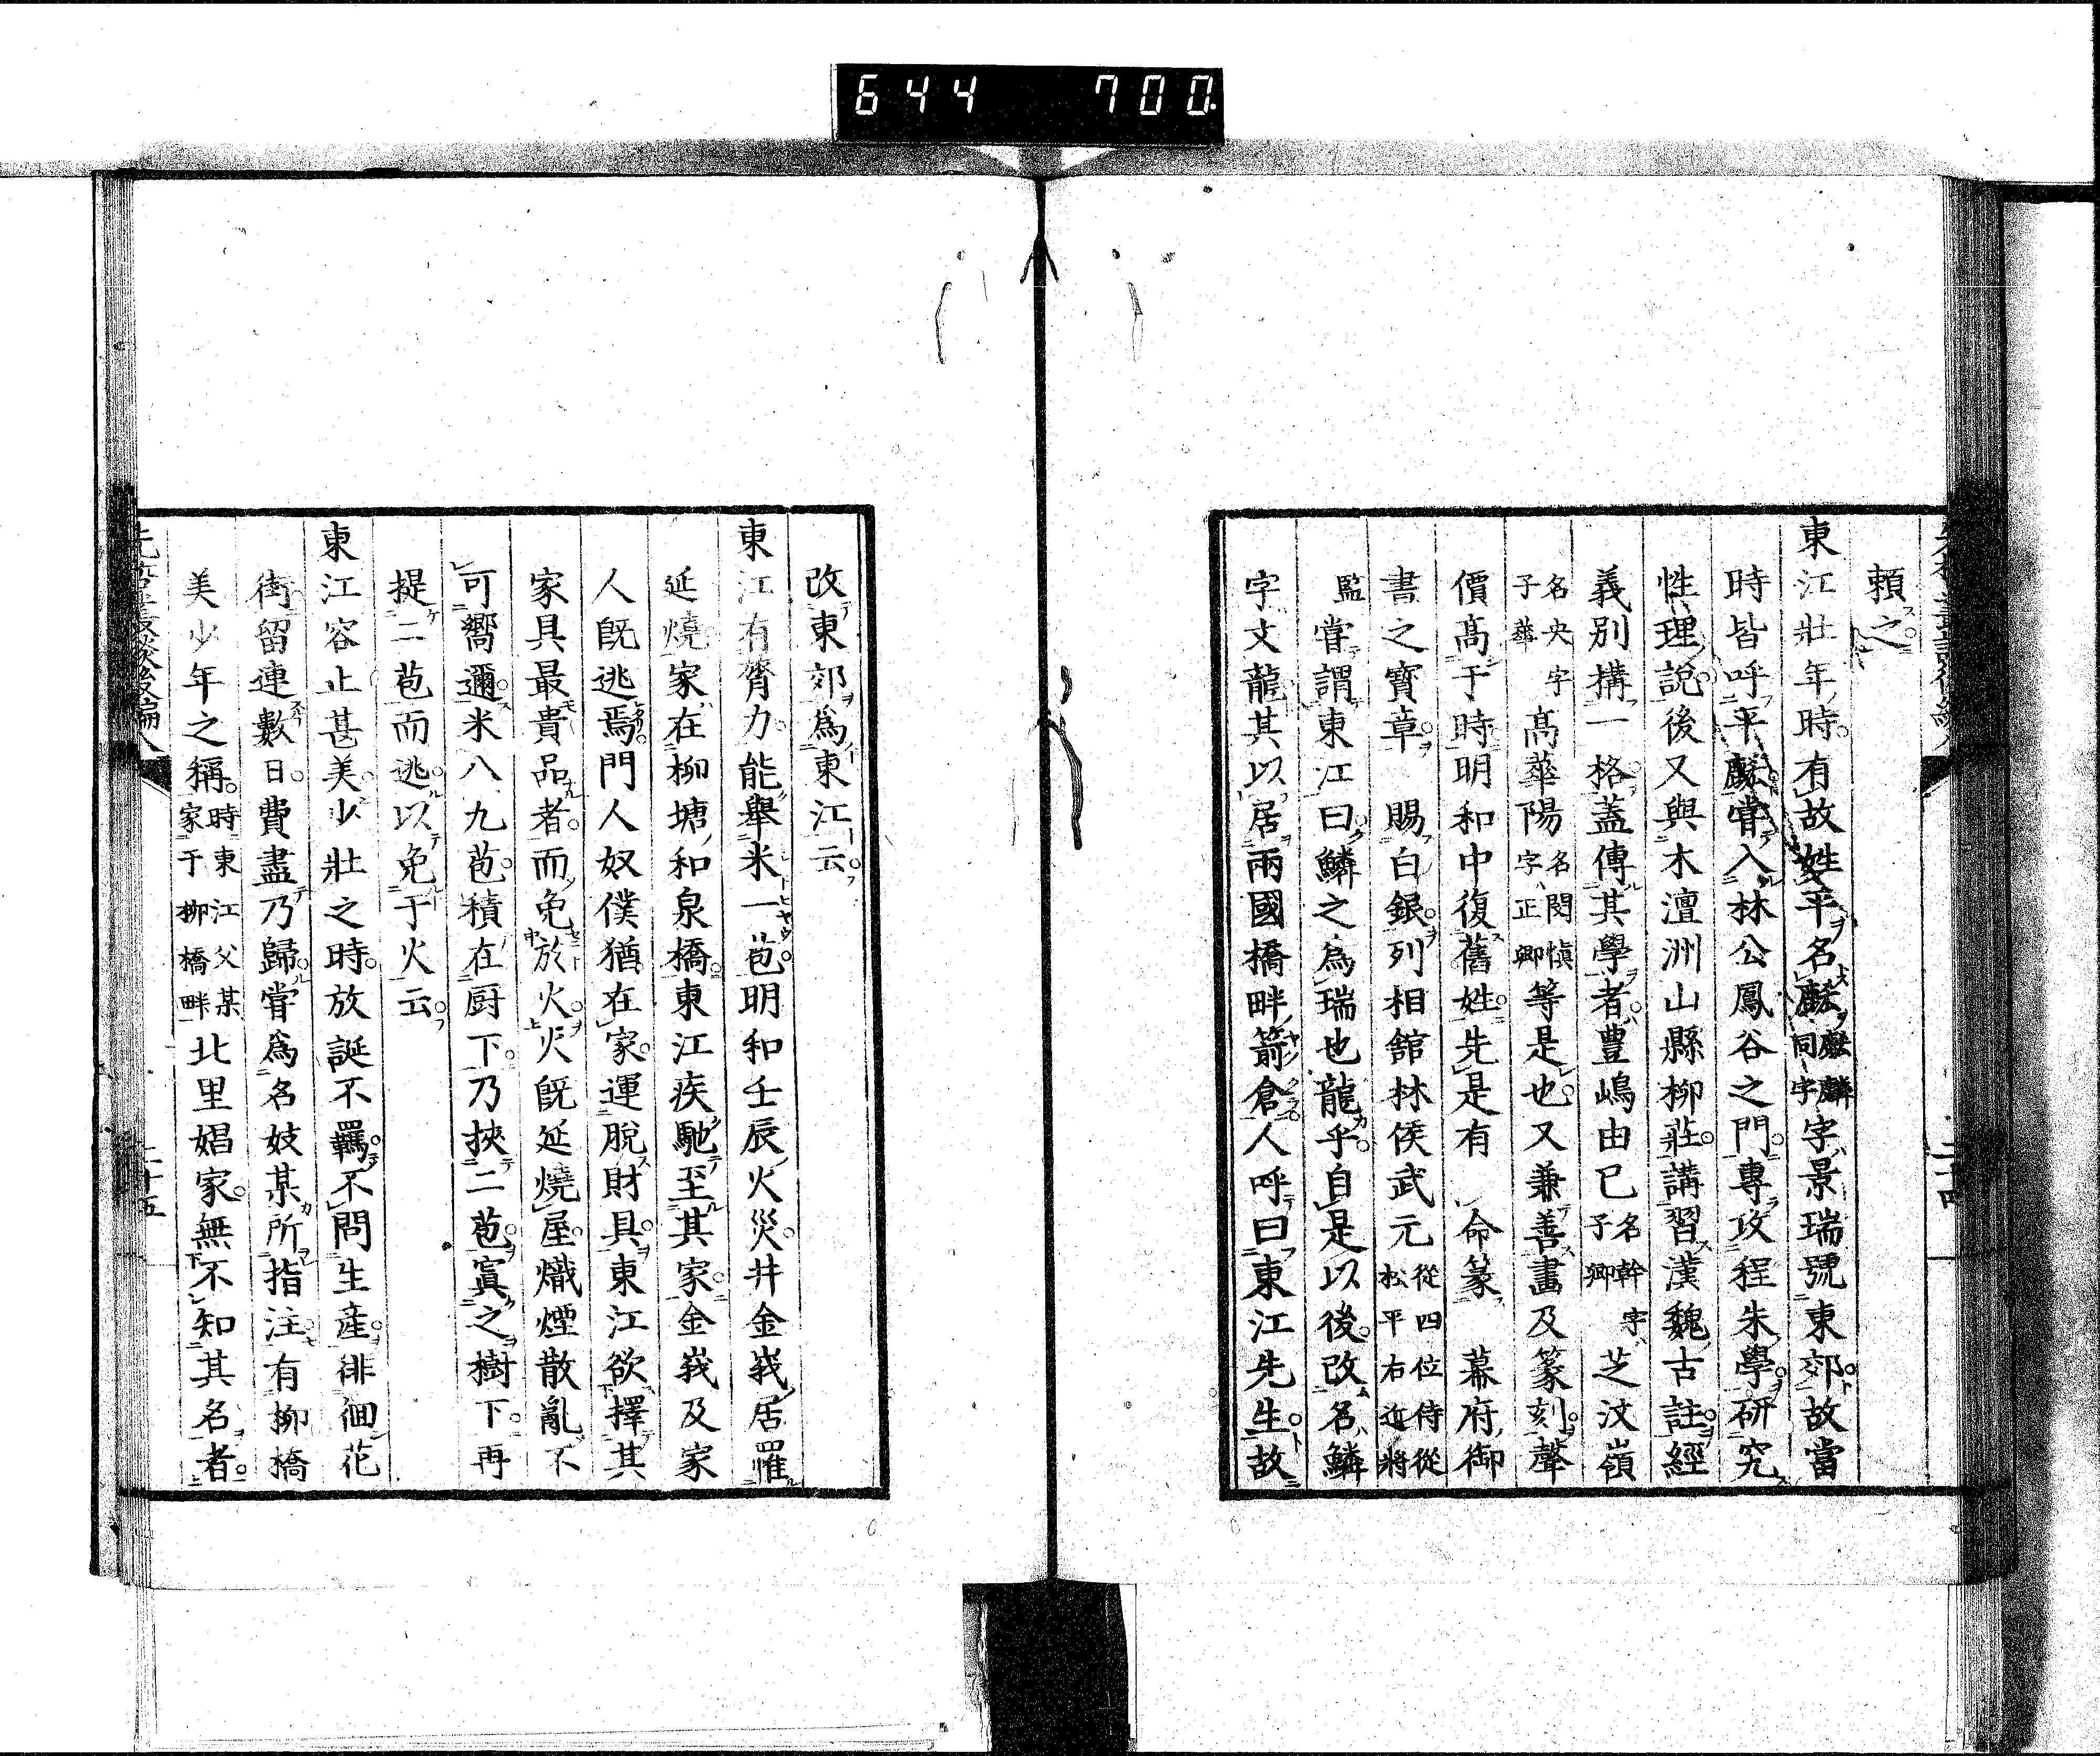 644 700
頼之
東江壯年時有故姓平名鱗字景瑞號東郊故當
時皆呼平鱗嘗入林公鳳谷之門專攻程朱學研究
性理說後又與木澶洲山縣柳莊講習漢魏古註經
義別構一格蓋傳其學者豊嶋由已名幹字子卿芝汶嶺
名央字子華髙華陽名閔愼字正卿等是也又兼善畵及篆刻聲
價髙于時明和中復舊姓先是有 命篆 幕府御
書之寳章 賜白銀列相舘林侯武元從四位侍從松平右近將
監嘗謂東江曰鱗之爲瑞也龍乎自是以後改名鱗
字文龍其以居兩國橋畔箭倉人呼曰東江先生故
二十四
改東郊爲東江云
東江有膂力能舉米一苞明和壬辰火災井金峩居罹
延燒家在柳塘和泉橋東江疾馳至其家金峩及家
人旣逃焉門人奴僕猶在家運脫財具東江欲擇其
家具最貴品者而免於火火旣延燒屋熾煙散亂不
可嚮邇米八九苞積在厨下乃挾二苞寘之樹下再
提二苞而逃以免于火云
東江容止甚美少壯之時放誕不羈不問生産徘徊花
街留連數日費盡乃歸嘗爲名妓某所指注有柳橋
美少年之稱時東江父某家于柳橋畔北里娼家無不知其名者
先哲叢談後編八
二十五